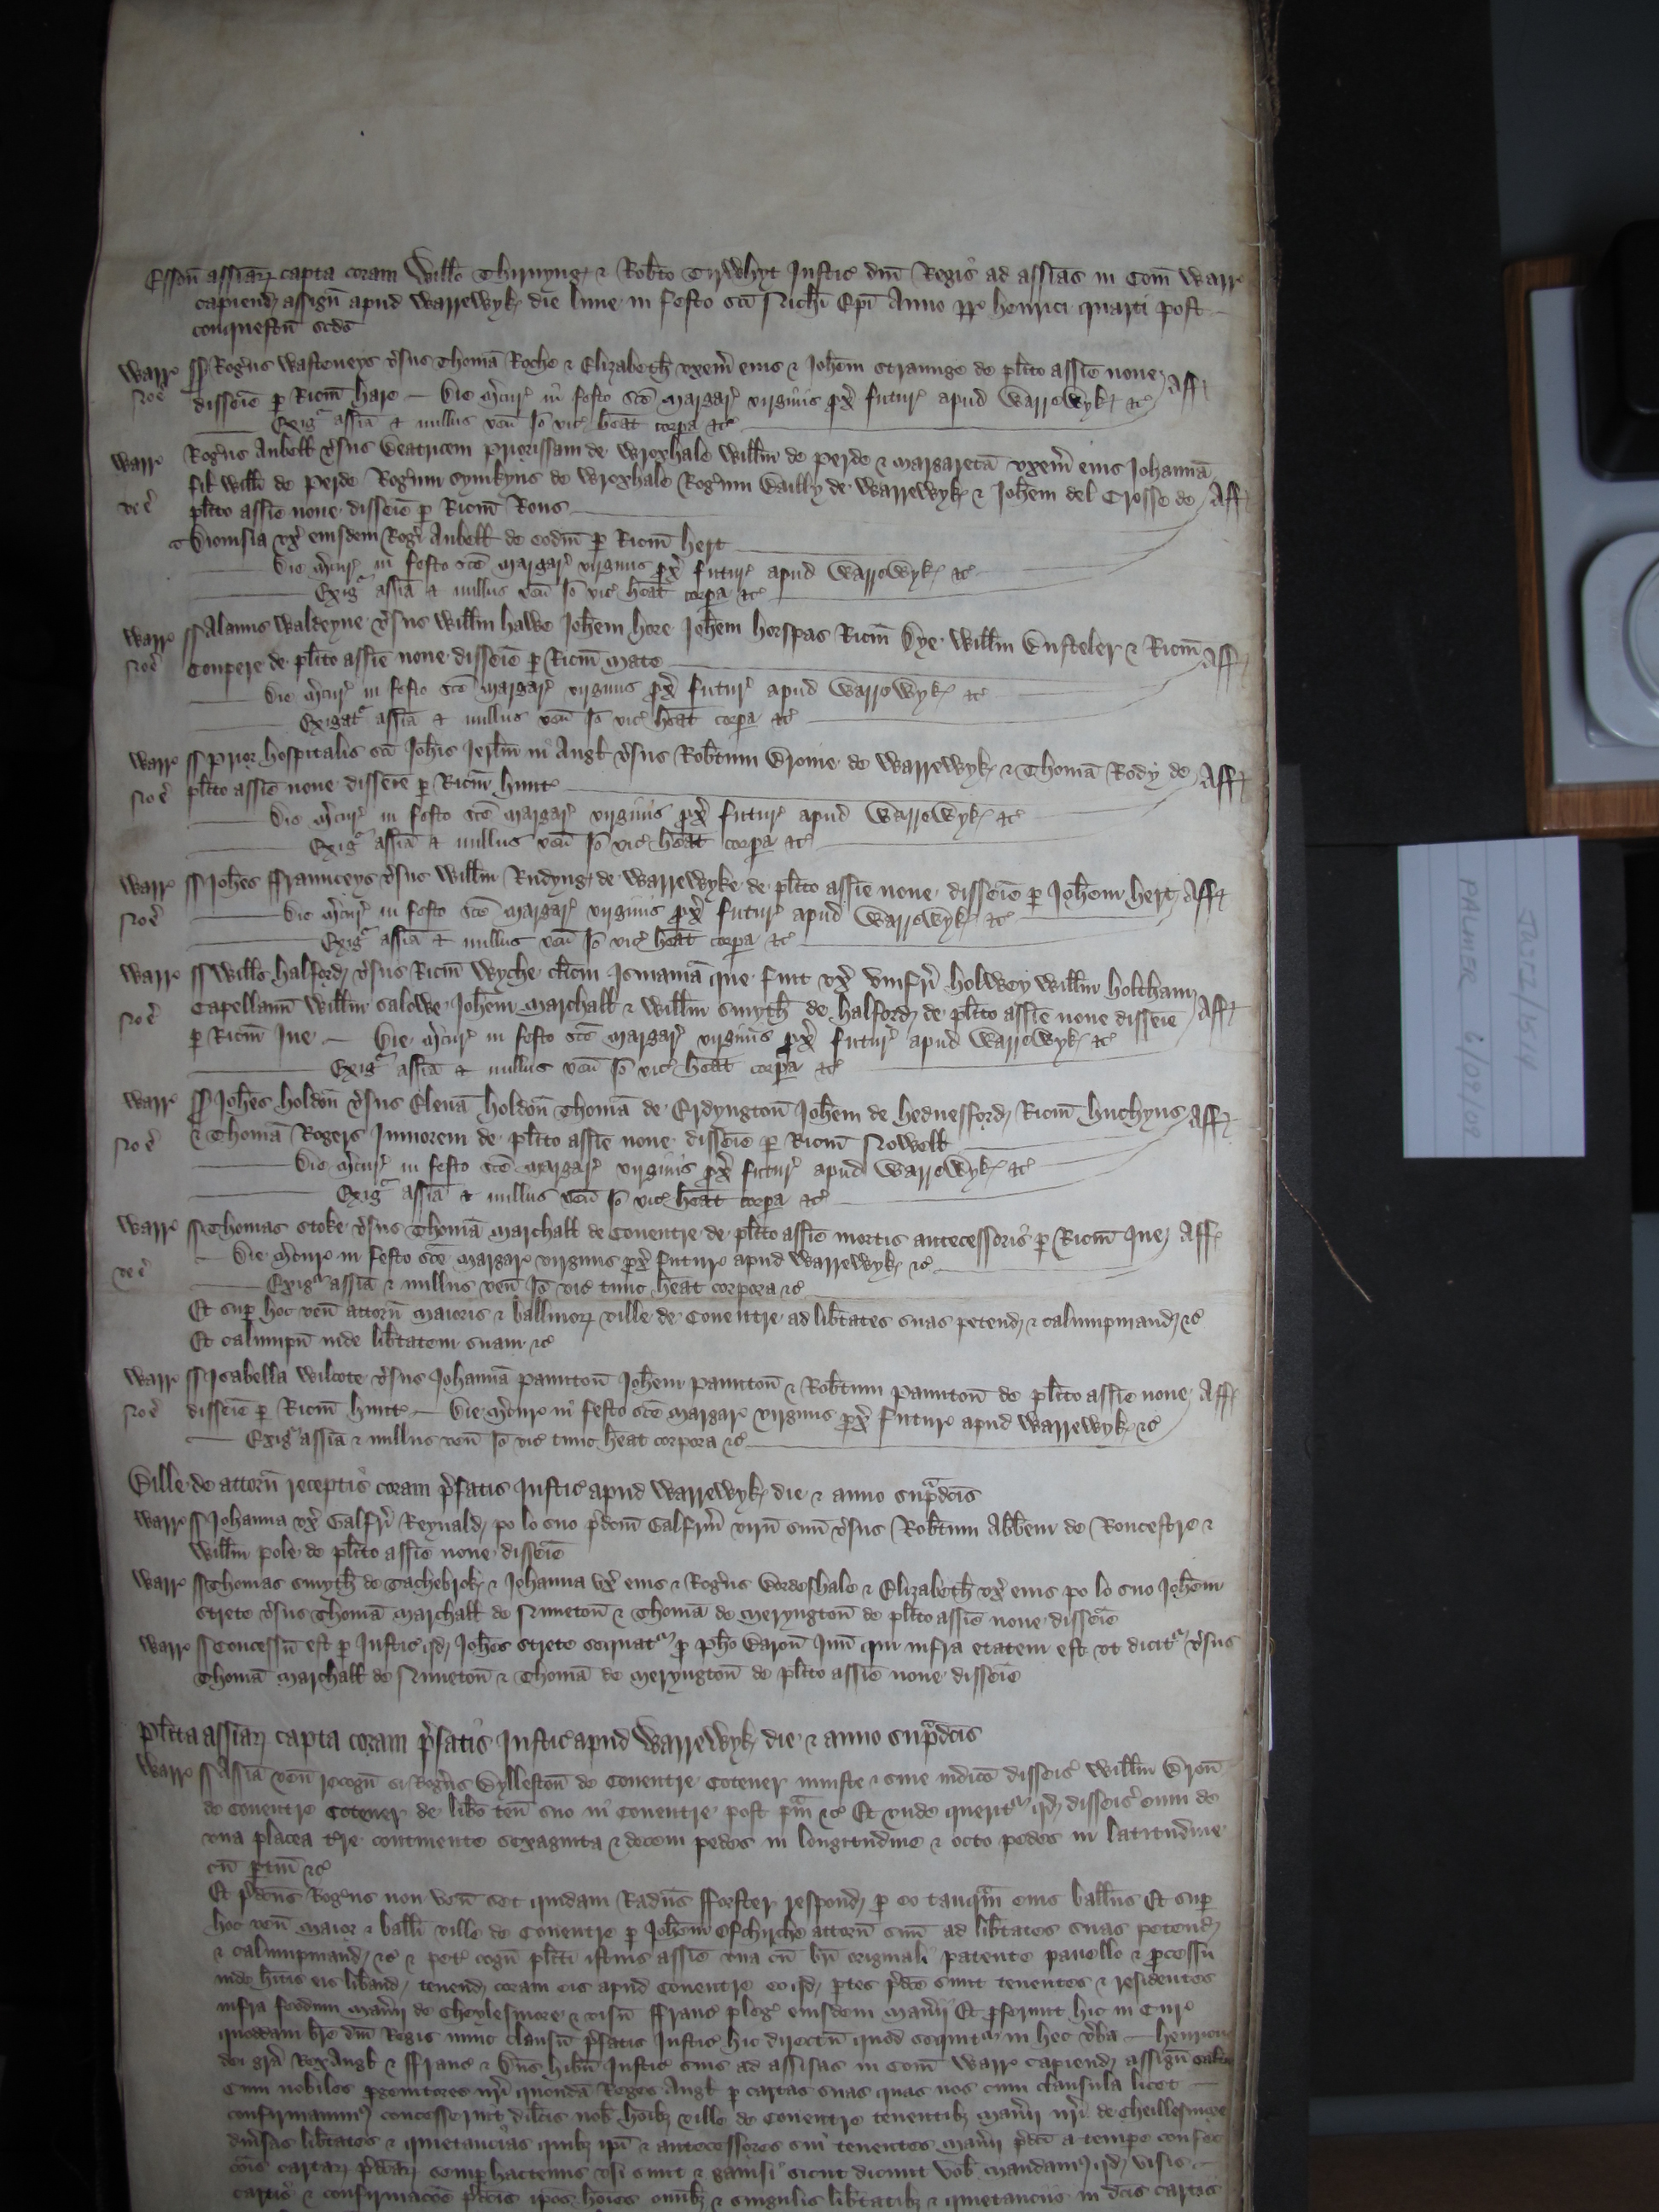 Esson assīaꝝ capta coram Willo Thirnyng & Robto Tirwhyt Justic dni Regis ad assias in Com Warr
capiend assign apud Warrewyk die lune in festo sci Nichi Epi Anno rr henrici quarti post
conquestu scdo
Warr Rogus Wasteneys vsus Thomā Roche & Elizabeth uxem eius & Johem Straunge de plito assie noue Aff
No e disseie p Ricm hare Die mcur in festo sce margar virginis px futur apud Warrewyk &c
Exigr assia & nullus ven Io vic heat corpa &c
Warr Rogus Aubell vsus Beatricem Priorissam de Wroxhale Willm de Perde & margaretā uxem eius Johannā
fil Willi de Perde Rogum Symkyns de Wroxhale Rogum Bailly de Warrewyk & Johem del Crosse de Aff
plito assie noue disseie p Ricm Rous
Dionisia ux eiusdem Rogi Aubell de eodm p Ricm hert
Die mcur in festo sce margar virginis px futur apud Warrewyk &c
Exigr assia & nullus ven Io vic heat corpa &c
Warr Alanus Waldeyne vsus Willm hawe Johem hore Johem horspas Ricm Dye Willm Busteler & Ricm Aff
No e Coupere de plito assie noue disseie p Ricm mate
Die mcur in festo sce margar virginis px futur apud Warrewyk &c
Exigatr assia & nullus ven Io vic heat corpa &c
Warr Prior hospitalis sci Johis Jerlm in Angl vsus Robtum Brome de Warrewyk & Thomā Rody de Aff
No e plito assie noue disseie p Ricm hunte
Die mcur in festo sce margar virginis px futur apud Warrewyk &c
Exigr assia & nullus ven Io vic heat corpa &c
Warr Johes ffraunceys vsus Willm Rudyng de Warrewyke de plito assie noue disseie p Johem hert Aff
No e Die mcur in festo sce margar virginis px futur apud Warrewyk &c
Exigr assia & nullus ven Io vic heat corpa &c
Warr Willo halford vsus Ricm Wyche clicm Ismaniā que fuit ux Umfri holwey Willm holtham
No e Capellanu Willm Salowe Johem Marchall & Willm Smyth de halford de plito assie noue disseie Aff
p Ricm Jne Die mcur in festo sce margar virginis px futur apud Warrewyk &c
Exigr assia & nullus ven Io vic heat corpa &c
Warr Johes holdon vsus Elenā holdon Thomā de Erdyngton Johem de hednesford Ricm huchyns Aff
No e & Thomā Rogers Juniorem de plito assie noue disseie p Ricm Nowell
Die mcur in festo sce margar virginis px futur apud Warrewyk &c
Exigr assia & nullus ven Io vic heat corpa &c
Warr Thomas Stoke vsus Thomā Marchall de Couentre de plito assie mortis antecessoris p Ricm Jne Aff
Die mcur in festo sce margar virginis px futur apud Warrewyk &c
Exigr assia & nullus ven Io vic tunc heat corpora &c
Et sup hoc ven attorn maioris & balliuoꝝ ville de Couentre ad libtates suas petend & calumpniand &c
Et calumpn inde libtatem suam &c
Warr Isabella Wilcote vsus Johannā Paunton Johem Paunton & Robtum Paunton de plito assie noue Aff
No e disseie p Ricm hunte Die mcur in festo sce margar virginis px futur apud Warrewyk &c
Exigr assia & nullus ven Io vic tunc heat corpora &c
Bille de attorn receptis coram pfatis Justic apud Warrewyk die & anno supdcis
Warr Johanna ux Galfri Reynald po lo suo pdcm Galfrm viru suu vsus Robtum Abbem de Roucestre &
Willm Pole de plito assie noue disseie
Warr Thomas Smyth de Tachebrok & Johanna ux eius & Rogus Bordeshale & Elizabeth ux eius po lo suo Johem
Strete vsus Thomā Marchall de Nuneton & Thomā de Meryngton de plito assie noue disseie
Warr Concessu est p Justic qd Johes Strete sequatr p Pho Baron Jun qui infra etatem est ut dicitr vsus
Thomā Marchall de Nuneton & Thomā de Meryngton de plito assie noue disseie
Plita assiaꝝ capta coram pfatis Justic apud Warrewyk die & anno supdcis
Warr Assia ven recogn si Rogus Bylleston de Couentre Cotener iniuste & sine iudico disseis Willm Bron
de Couentre Cotener de libo ten suo in Couentre post pm &c Et unde queritr qd disseis eum de
una placea tre continente sexaginta & decem pedes in longitudine & octo pedes in latitudine
cu ptin &c
Et pdcus Rogus non ven set quidam Radus fforster respond p eo tanqm eius ballus Et sup
hoc ven maior & balli ville de Couentre p Johem Eschirche attorn suu ad libtates suas petend
& calumpniand &c & pet cogn pliti istius assie una cu bri originali patente panello & pcessu
inde hitis eis liband tenend coram eis apud Couentre eo qd ptes pdce sunt tenentes & residentes
infra feodum manii de Cheylesmore & visu ffranc pleg eiusdem manii Et pferunt hic in Cur
quoddam bre dni Regis nunc clausu pfatis Justic hic directu quod sequitr in hec vba henricus
dei gra Rex Angl & ffranc & Dns hibn Justic suis ad assisas in Com Warr capiend assign saltm
Cum nobiles pgenitores nri quondā Reges Angl p cartas suas quas nos cum clausula licet
confirmauimꝰ concesserint dilcis nob hoibꝫ ville de Couentre tenentibꝫ manii nri de Cheillesmore
diusas libtates & quietancias quibꝫ ipi & antecessores sui tenentes manii pdci a tempe confec
cois cartaꝝ pdcaꝝ semp hactenus usi sunt & gauisi sicut dicunt Vob mandamꝰ qd visis
cartis & confirmacoe pdcis ipos hoies omibꝫ & singulis libtatibꝫ & quietanciis in dcis cartis
JUST2/1514
PALMER 6/02/08